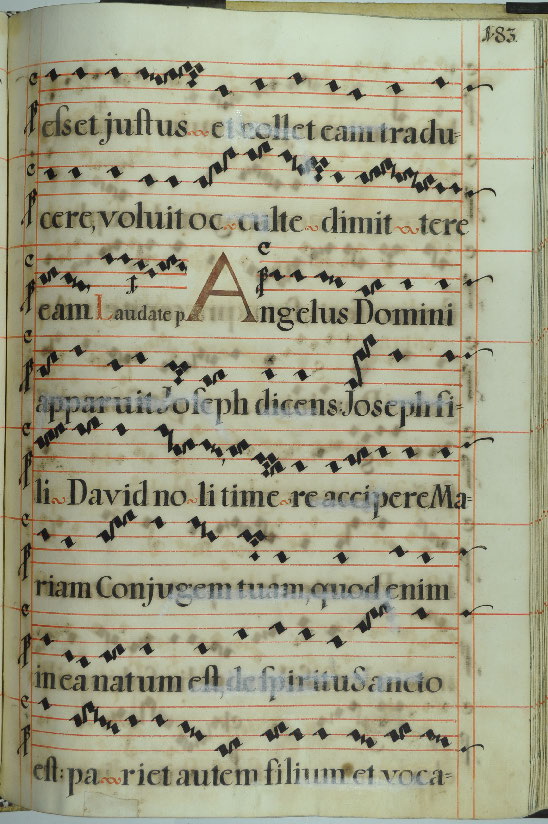 183.
esset justus et nollet eam tradu=
cere, voluit occulte dimittere
eam. Laudate p. Angelus Domini
apparuit Joseph dicens: Joseph fi=
li David noli timere accipere Ma=
riam Conjugem tuam, quod enim
in ea natum est, de spiritu Sancto
est: pariet autem filium et voca=